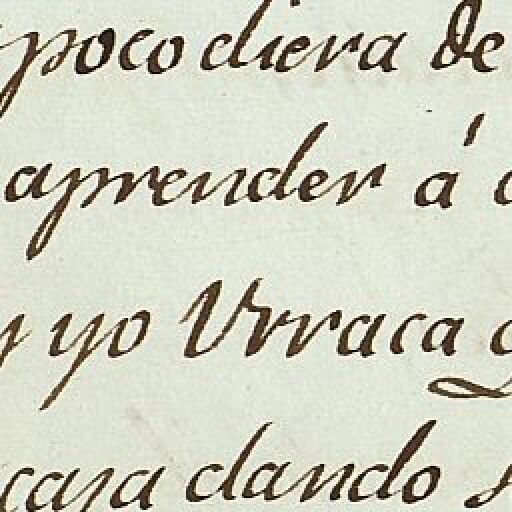 poco diera de
aprender á
y yo Urraca
casa dando